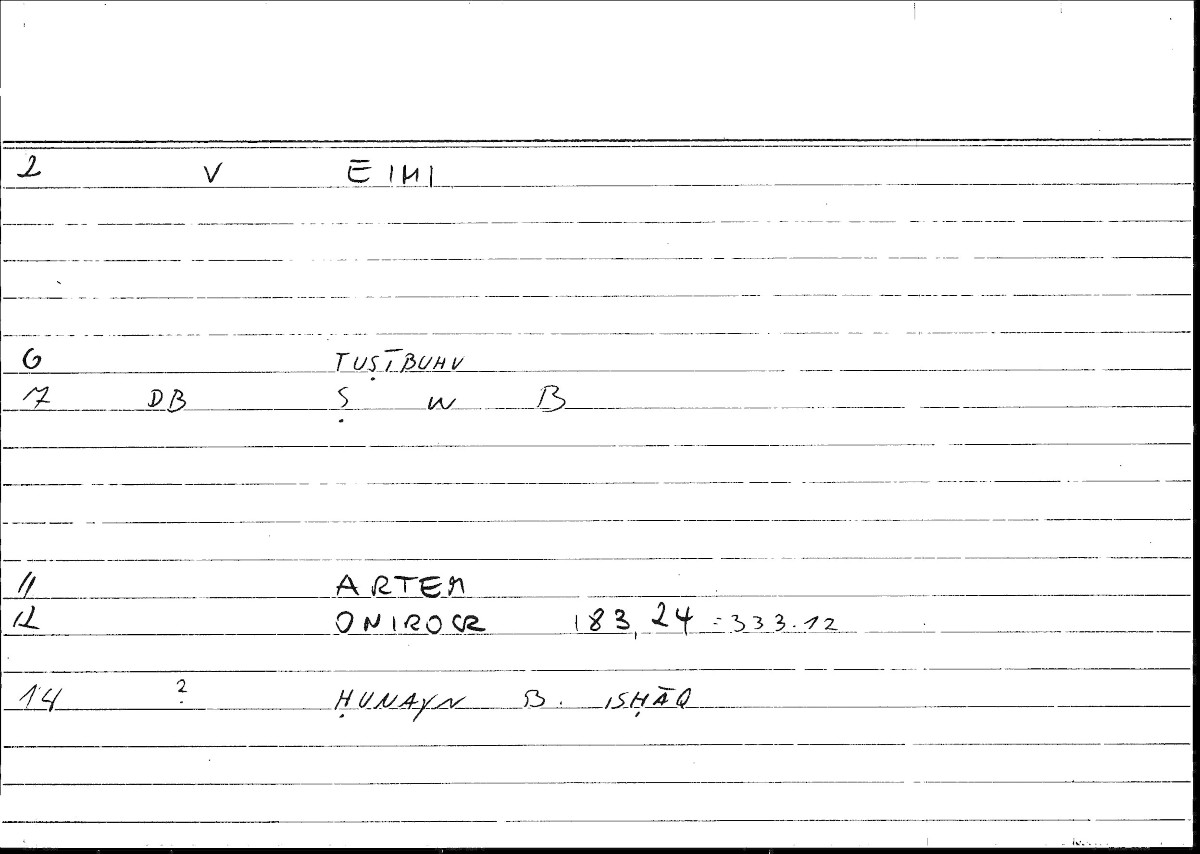 2 V EIMI
6 TUṢĪBUHU
7 DB Ṣ W B
11 ARTEM
12 ONIROCR 183,24 =333.12
14 ? ḤUNAYN B. ISḤĀQ